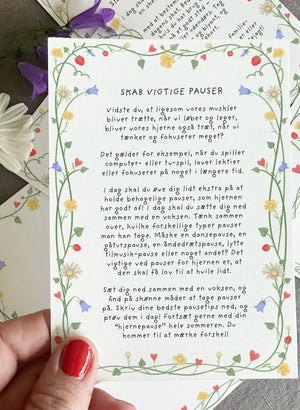 SKAB VIGTIGE PAUSER
Vidste du, at ligesom vores muskler
bliver trætte, når vi løber og leger,
bliver vores hjerne også træt, når vi
tænker og fokuserer meget?
Det gælder for eksempel, når du spiller
computer- eller tv-spil, laver lektier
eller fokuserer på noget i længere tid.
I dag skal du øve dig lidt ekstra på at
holde behagelige pauser, som hjernen
har godt af. I dag skal du sætte dig ned
sammen med en voksen. Tænk sammen
over, hvilke forskellige typer pauser
man kan tage. Måske en dansepause, en
gåturspause, en åndedrætspause, lytte
til musik-pause eller noget andet? Det
vigtige ved pauser for hjernen er, at
den skal få lov til at hvile lidt.
Sæt dig ned sammen med en voksen, og
find på skønne måder at tage pauser
på. Skriv dine bedste pausetips ned, og
prøv dem i dag! Fortsæt gerne med din
"hjernepause" hele sommeren. Du
kommer til at mærke forskel!